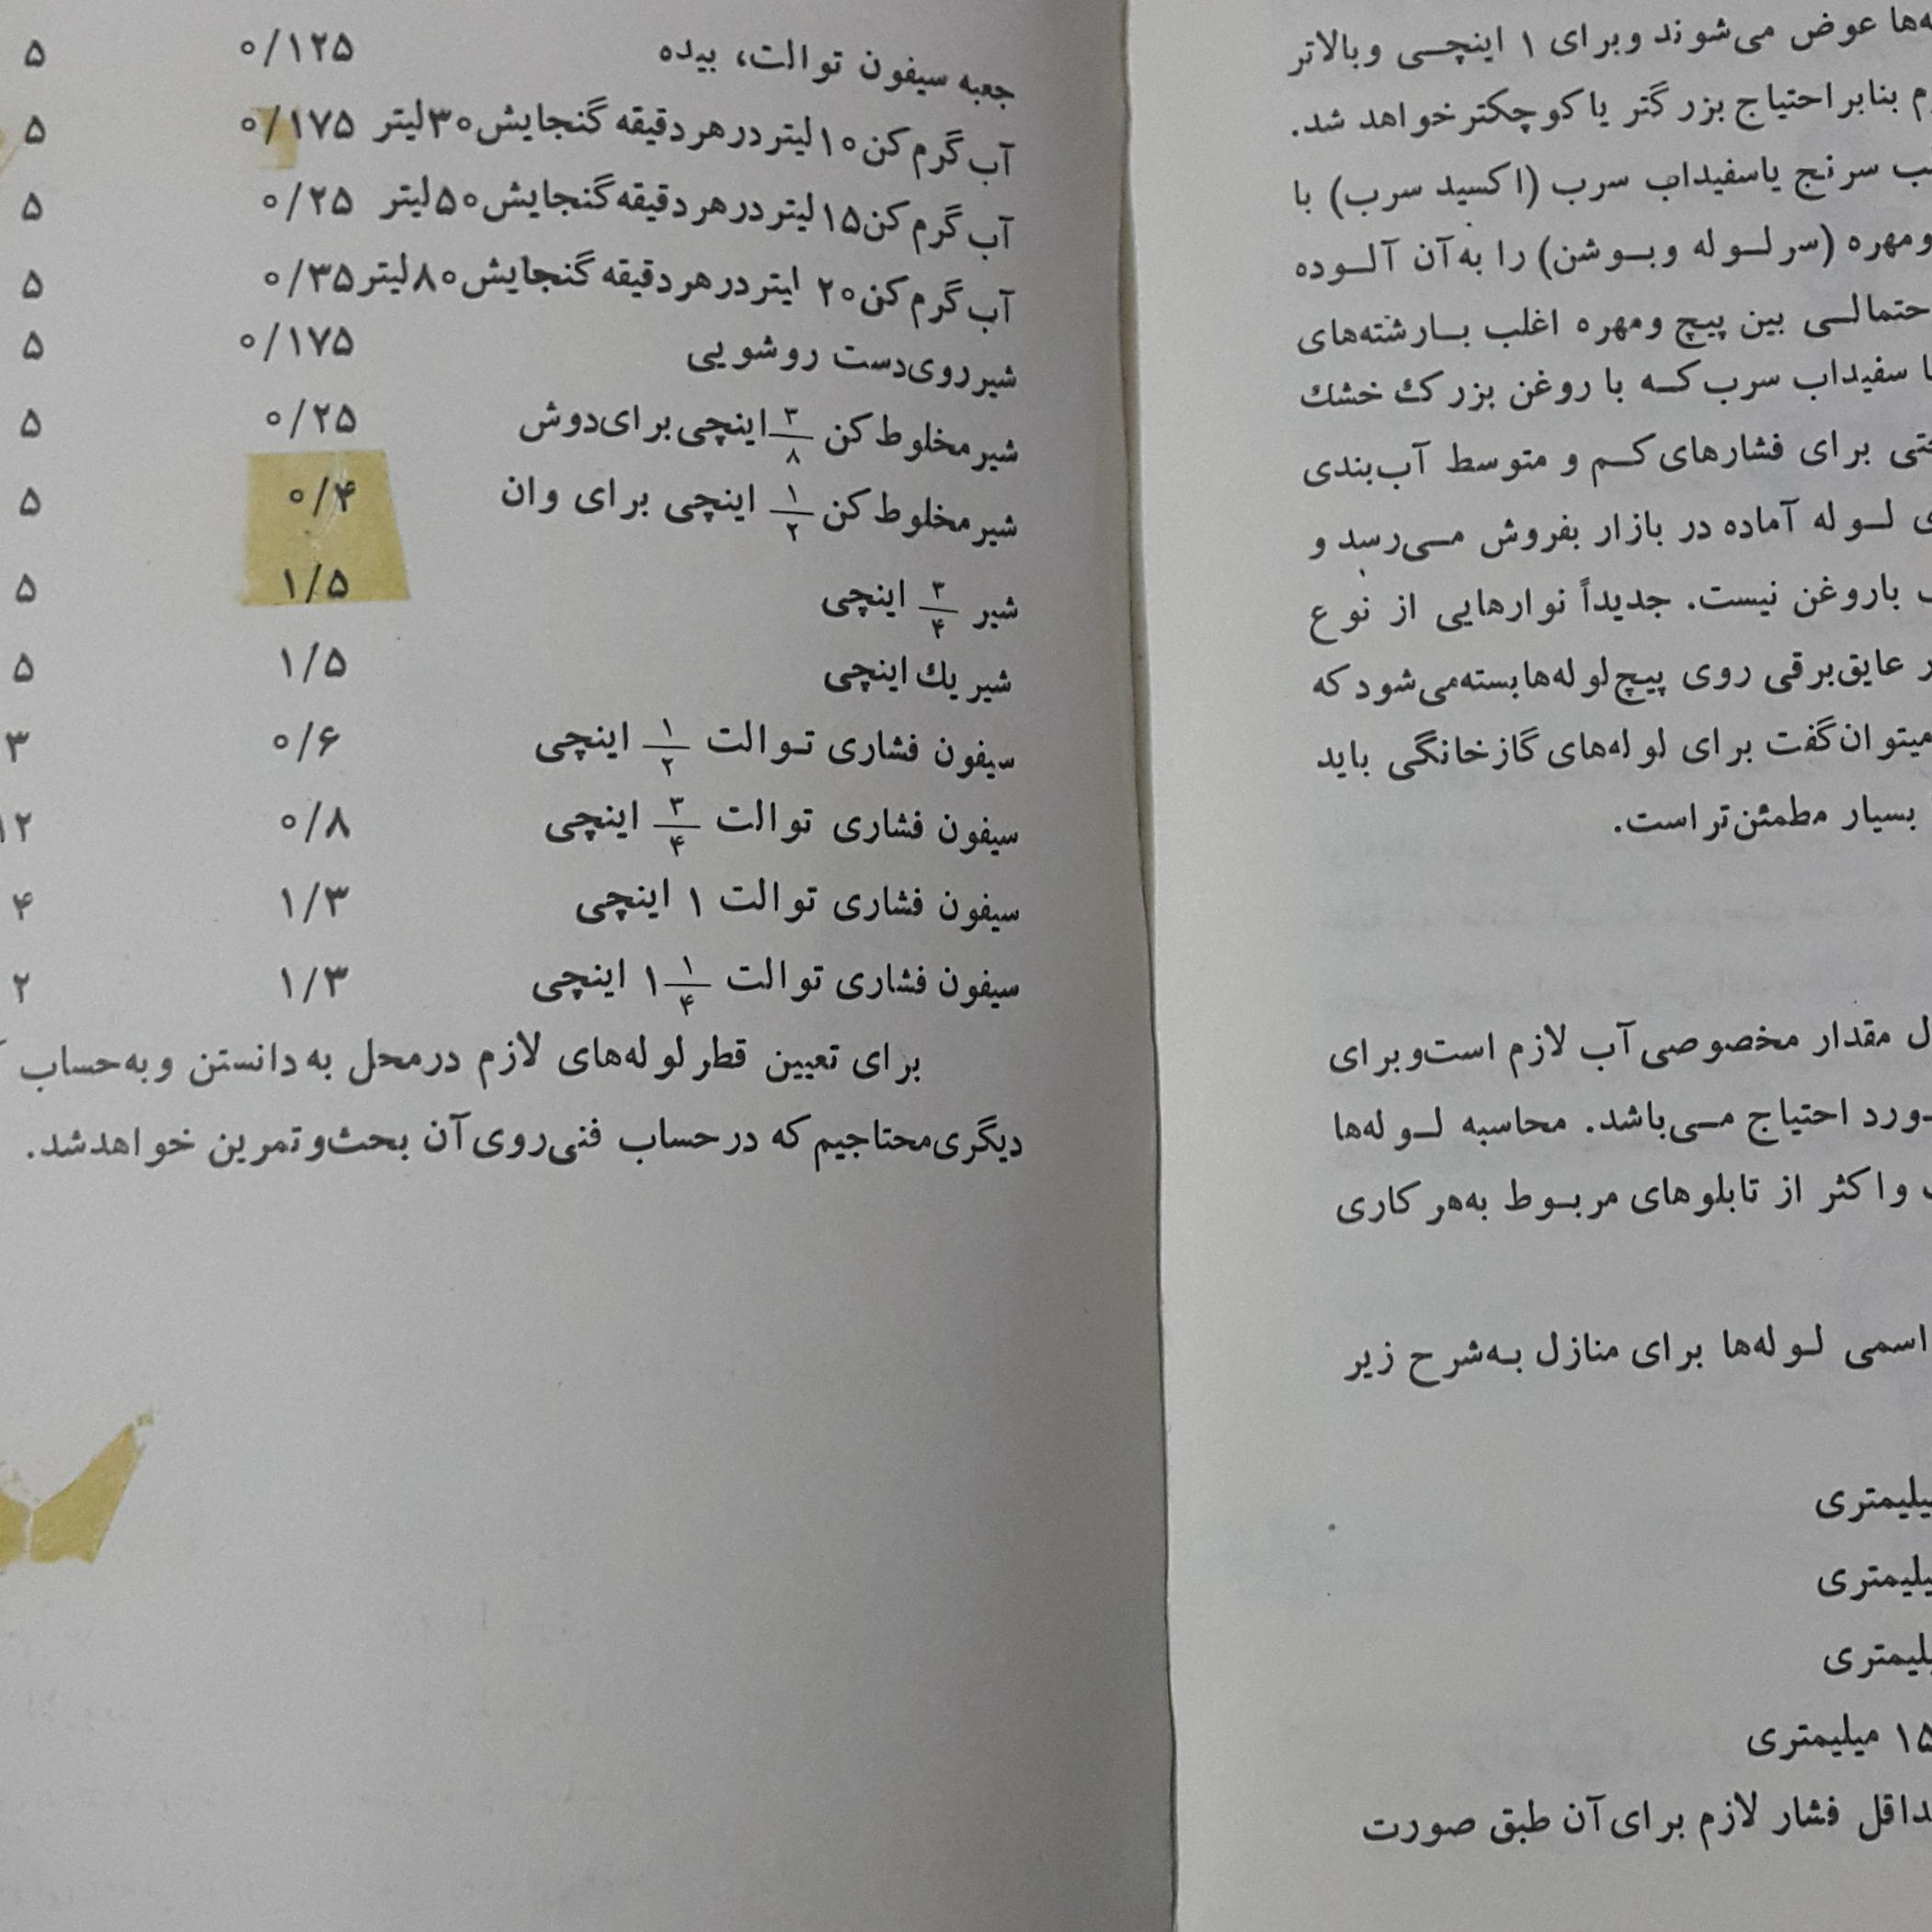 عوض می‌شوند وبرای ۱ اینچی وبالاتر
بنابر احتیاج بزرگتر یا کوچکتر خواهد شد.
سرنج یا سفیداب سرب (اکسید سرب) با
ومهره (سر لوله وبوشن) را به آن آلوده
بین پیچ ومهره اغلب بارشته‌های
سفیداب سرب که با روغن بزرک خشك
برای فشارهای کم و متوسط آب‌بندی
لوله آماده در بازار بفروش می‌رسد و
باروغن نیست. جدیداً نوارهایی از نوع
عایق‌برقی روی پیچ لوله‌ها بسته می‌شود که
میتوان گفت برای لوله‌های گازخانگی باید
بسیار مطمئن‌تر است.
مقدار مخصوصی آب لازم است وبرای
احتیاج می‌باشد. محاسبه لوله‌ها
واکثر از تابلوهای مربوط به هر کاری
اسمی لوله‌ها برای منازل به شرح زیر
میلیمتری
فشار لازم برای آن طبق صورت
جعبه سیفون توالت، بیده ۰/۱۲۵ ۵
آب گرم کن ۱۰ لیتر در هر دقیقه گنجایش ۳۰ لیتر ۰/۱۷۵ ۵
آب گرم کن ۱۵ لیتر در هر دقیقه گنجایش ۵۰ لیتر ۰/۲۵ ۵
آب گرم کن ۲۰ لیتر در هر دقیقه گنجایش ۸۰ لیتر ۰/۳۵ ۵
شیر روی دست روشویی ۰/۱۷۵ ۵
شیر مخلوط کن ۳/۸ اینچی برای دوش ۰/۲۵ ۵
شیر مخلوط کن ۱/۲ اینچی برای وان ۰/۴ ۵
شیر ۳/۴ اینچی ۱/۵ ۵
شیر یك اینچی ۱/۵ ۵
سیفون فشاری توالت ۱/۲ اینچی ۰/۶ ۳
سیفون فشاری توالت ۳/۴ اینچی ۰/۸ ۱۲
سیفون فشاری توالت ۱ اینچی ۱/۳ ۴
سیفون فشاری توالت ۱ ۱/۴ اینچی ۱/۳ ۲
برای تعیین قطر لوله‌های لازم در محل به دانستن وبه حساب
دیگری محتاجیم که در حساب فنی روی آن بحث و تمرین خواهد شد.